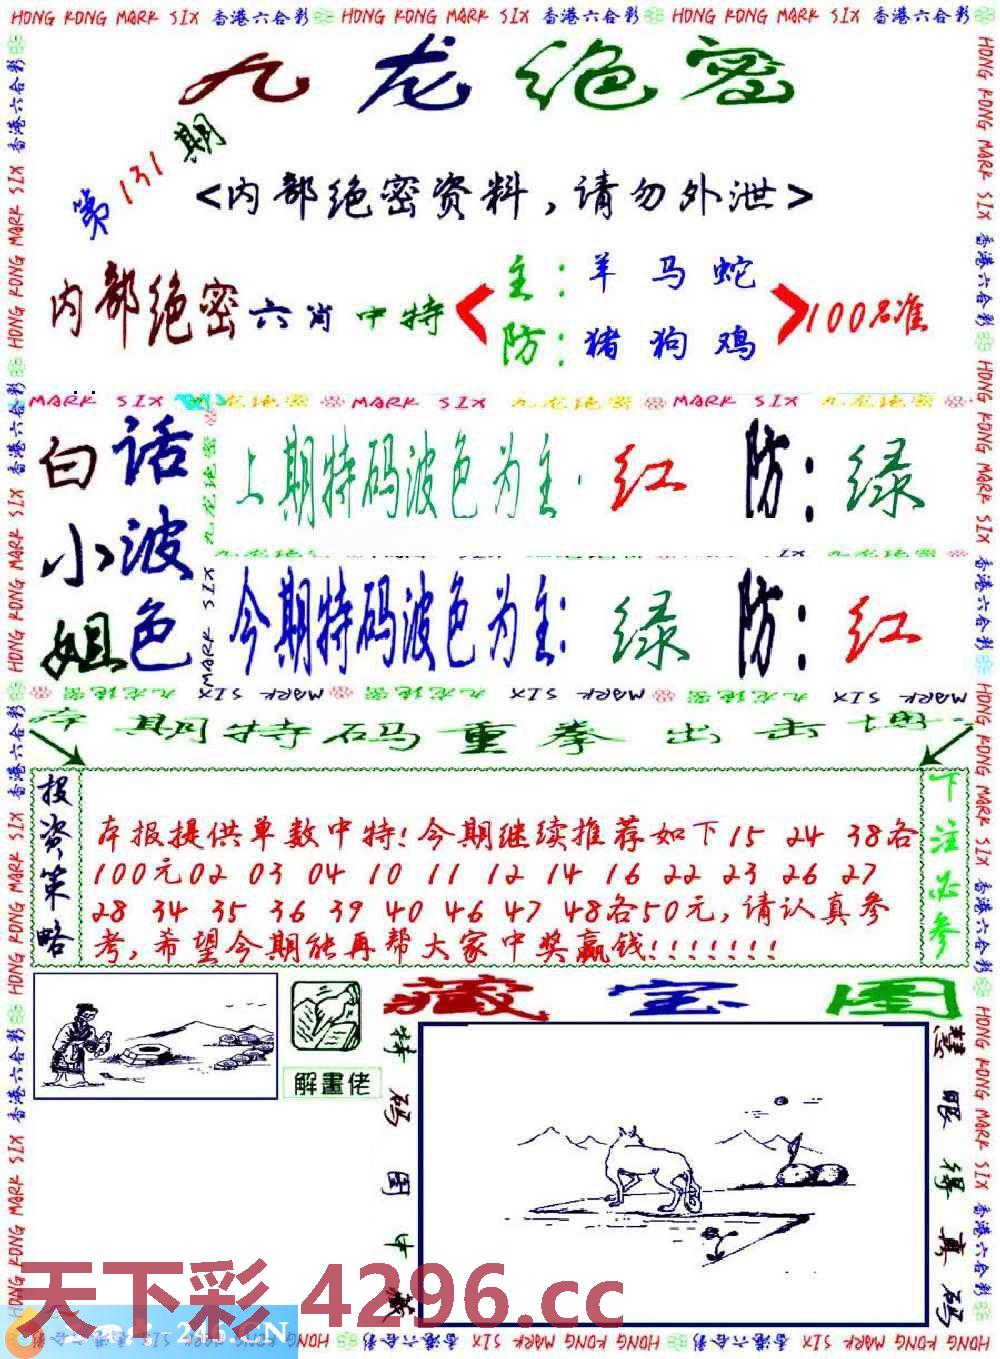 HONG KONG MARK SIX 香港六合彩 HONG KONG MARK SIX 香港六合彩 HONG KONG MARK SIX 香港六合彩
九龙绝密
第131期
<内部绝密资料,请勿外泄>
内部绝密六肖中特
主:羊马蛇
防:猪狗鸡
100%准
MARK SIX 九龙绝密 MARK SIX 九龙绝密 MARK SIX 九龙绝密
白小姐
话波色
上期特码波色为主·红 防:绿
今期特码波色为主:绿 防:红
本期特码重拳出击
投资策略
本报提供单数中特!今期继续推荐如下15 24 38各
100元02 03 04 10 11 12 14 16 22 23 26 27
28 34 35 36 39 40 46 47 48各50元,请认真参
考,希望今期能再帮大家中奖赢钱!!!!!!!
下注必参
藏宝图
解畫佬
特码图中藏
慧眼得真码
天下彩 4296.cc
246.CN
HONG KONG MARK SIX 香港六合彩